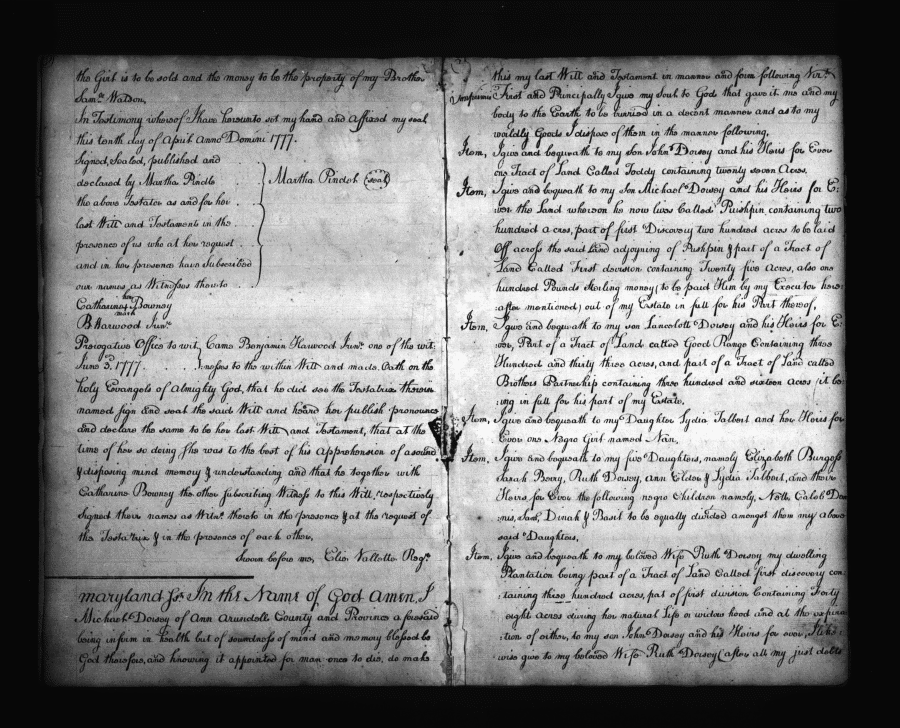 the Girl is to be sold and the money to be the property of my Brother
Saml. Watson,
In Testimony whereof I have hereunto set my hand and Affixed my seal
this tenth day of April Anno Domini 1777.
Signed, Sealed, published and
declared by Martha Pindle
the above Testator as and for her
last Will and Testament in the
presence of us who at her request
and in her presence have Subscribed
our names as Witnesses thereto
Martha Pindle (seal)
Catharine Bowney
mark
B Harwood Junr.
Prerogative Office to wit, Came Benjamin Harwood Junr. one of the wit:
June 3d. 1777 :nesses to the within Will and made Oath on the
holy Evangels of Almighty God, that he did see the Testatrix therein
named sign and seal the said Will and heard her publish pronounce
and declare the same to be her last Will and Testament, that at the
time of her so doing, She was to the best of his Apprehension of a sound
& disposing mind memory & understanding and that he together with
Catharine Bowney the other subscribing Witness to this Will, respectively
Signed their names as Witns. thereto in the presence & at the request of
the Testatrix & in the presence of each other,
Sworn before me, Elie Vallette Regr.
Maryland ss. In the Name of God Amen, I
Michael Dorsey of Ann Arundell County and Province aforesaid
being infirm in health but of soundness of mind and memory blessed be
God therefore, and knowing it appointed for man once to die, do make
this my last Will and Testament in manner and form following Vizt.
Imprimis First and Principally I give my soul to God that gave it me and my
body to the Earth to be burried in a decent manner and as to my
worldly Goods I dispose of them in the manner following,
Item, I give and bequeath to my son John Dorsey and his Heirs for Ever
one Tract of Land Called Toddy containing twenty seven Acres.
Item, I give and bequeath to my Son Michael Dorsey and his Heirs for E:
ver the Land whereon he now lives Called Pushpin, containing two
hundred acres, part of first Discovery two hundred acres to be laid
Off across the said Land adjoyning of Pushpin & part of a Tract of
Land Called First devision containing Twenty five Acres, also one
hundred Pounds Sterling money to be paid Him by my Executor here:
:after mentioned, out of my Estate in full for his Part thereof,
Item, I give and bequeath to my son Lancelott Dorsey and his Heirs for E:
ver, Part of a Tract of Land called Good Range Containing three
Hundred and thirty three Acres, and part of a Tract of Land called
Brothers Partnership containing three hundred and sixteen Acres it be:
:ing in full for his part of my Estate,
Item, I give and bequeath to my Daughter Lydia Talbert and her Heirs for
Ever one Negro Girl named Nan,
Item, I give and bequeath to my five Daughters, namely Elizabeth Burgess
Sarah Berry, Ruth Dorsey, Ann Elder & Lydia Talbert, and their
Heirs, for Ever the following negro Children namely, Nell, Caleb Den
nis, Sam, Dinah & Basil to be equally divided amongst them my above
said Daughters,
Item, I give and bequeath to my beloved Wife Ruth Dorsey my dwelling
Plantation being part of a Tract of Land Called first discovery con:
:taining three hundred acres, part of first division Containing Forty
eight Acres during her natural Life or widow hood and at the expira
:tion of either, to my son John Dorsey and his Heirs for ever, Like:
:wise give to my beloved Wife Ruth Dorsey (after all my just debts